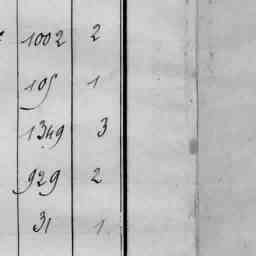 1002 2
105 1
1349 3
929 2
31 1